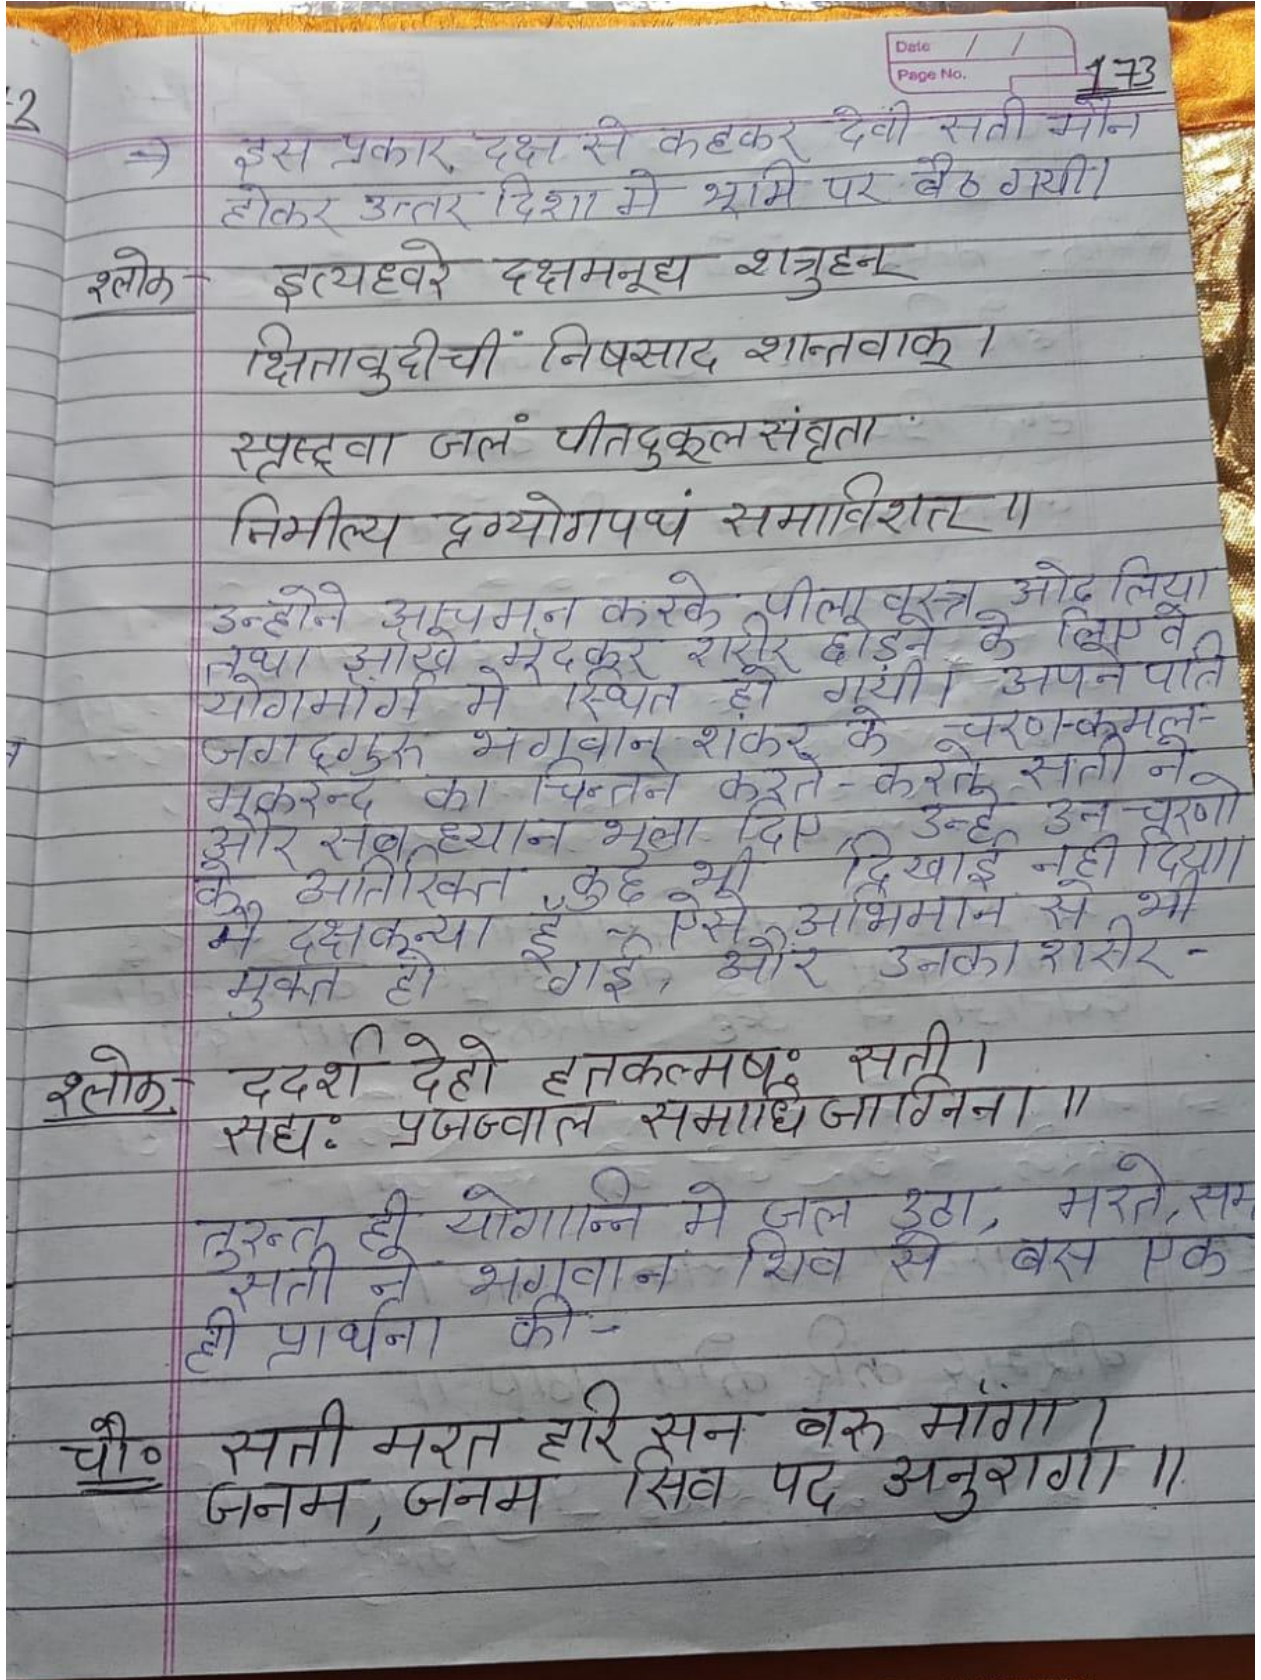 2
Date / /
Page No. 173
→ इस प्रकार दक्ष से कहकर देवी सती मौन
होकर उत्तर दिशा मे भूमि पर बैठ गयी।
श्लोक - इत्यध्वरे दक्षमनूद्य शत्रुहन्
क्षितावुदीचीं निषसाद शान्तवाक्।
स्पृष्ट्वा जलं पीतदुकूलसंवृता
निमील्य दृग्योगपथं समाविशत्॥
उन्होने आचमन करके पीला वस्त्र ओढ लिया
तथा आंखे मूंदकर शरीर छोडने के लिए वे
योगमार्ग मे स्थित हो गयीं। अपने पति
जगद्गुरु भगवान् शंकर के चरण-कमल-
मकरन्द का चिन्तन करते-करते सती ने
और सब ध्यान भुला दिए, उन्हे उन चरणो
के अतिरिक्त कुछ भी दिखाई नही दिया।
मै दक्षकन्या हूँ - ऐसे अभिमान से भी
मुक्त हो गई, और उनका शरीर -
श्लोक - ददर्श देहो हतकल्मषः सती।
सद्यः प्रजज्वाल समाधिजाग्निना॥
तुरन्त ही योगाग्नि मे जल उठा, मरते, सम
सती ने भगवान शिव से बस एक
ही प्रार्थना की -
चौ० सती मरत हरि सन बरु मांगा।
जनम, जनम सिव पद अनुरागा॥